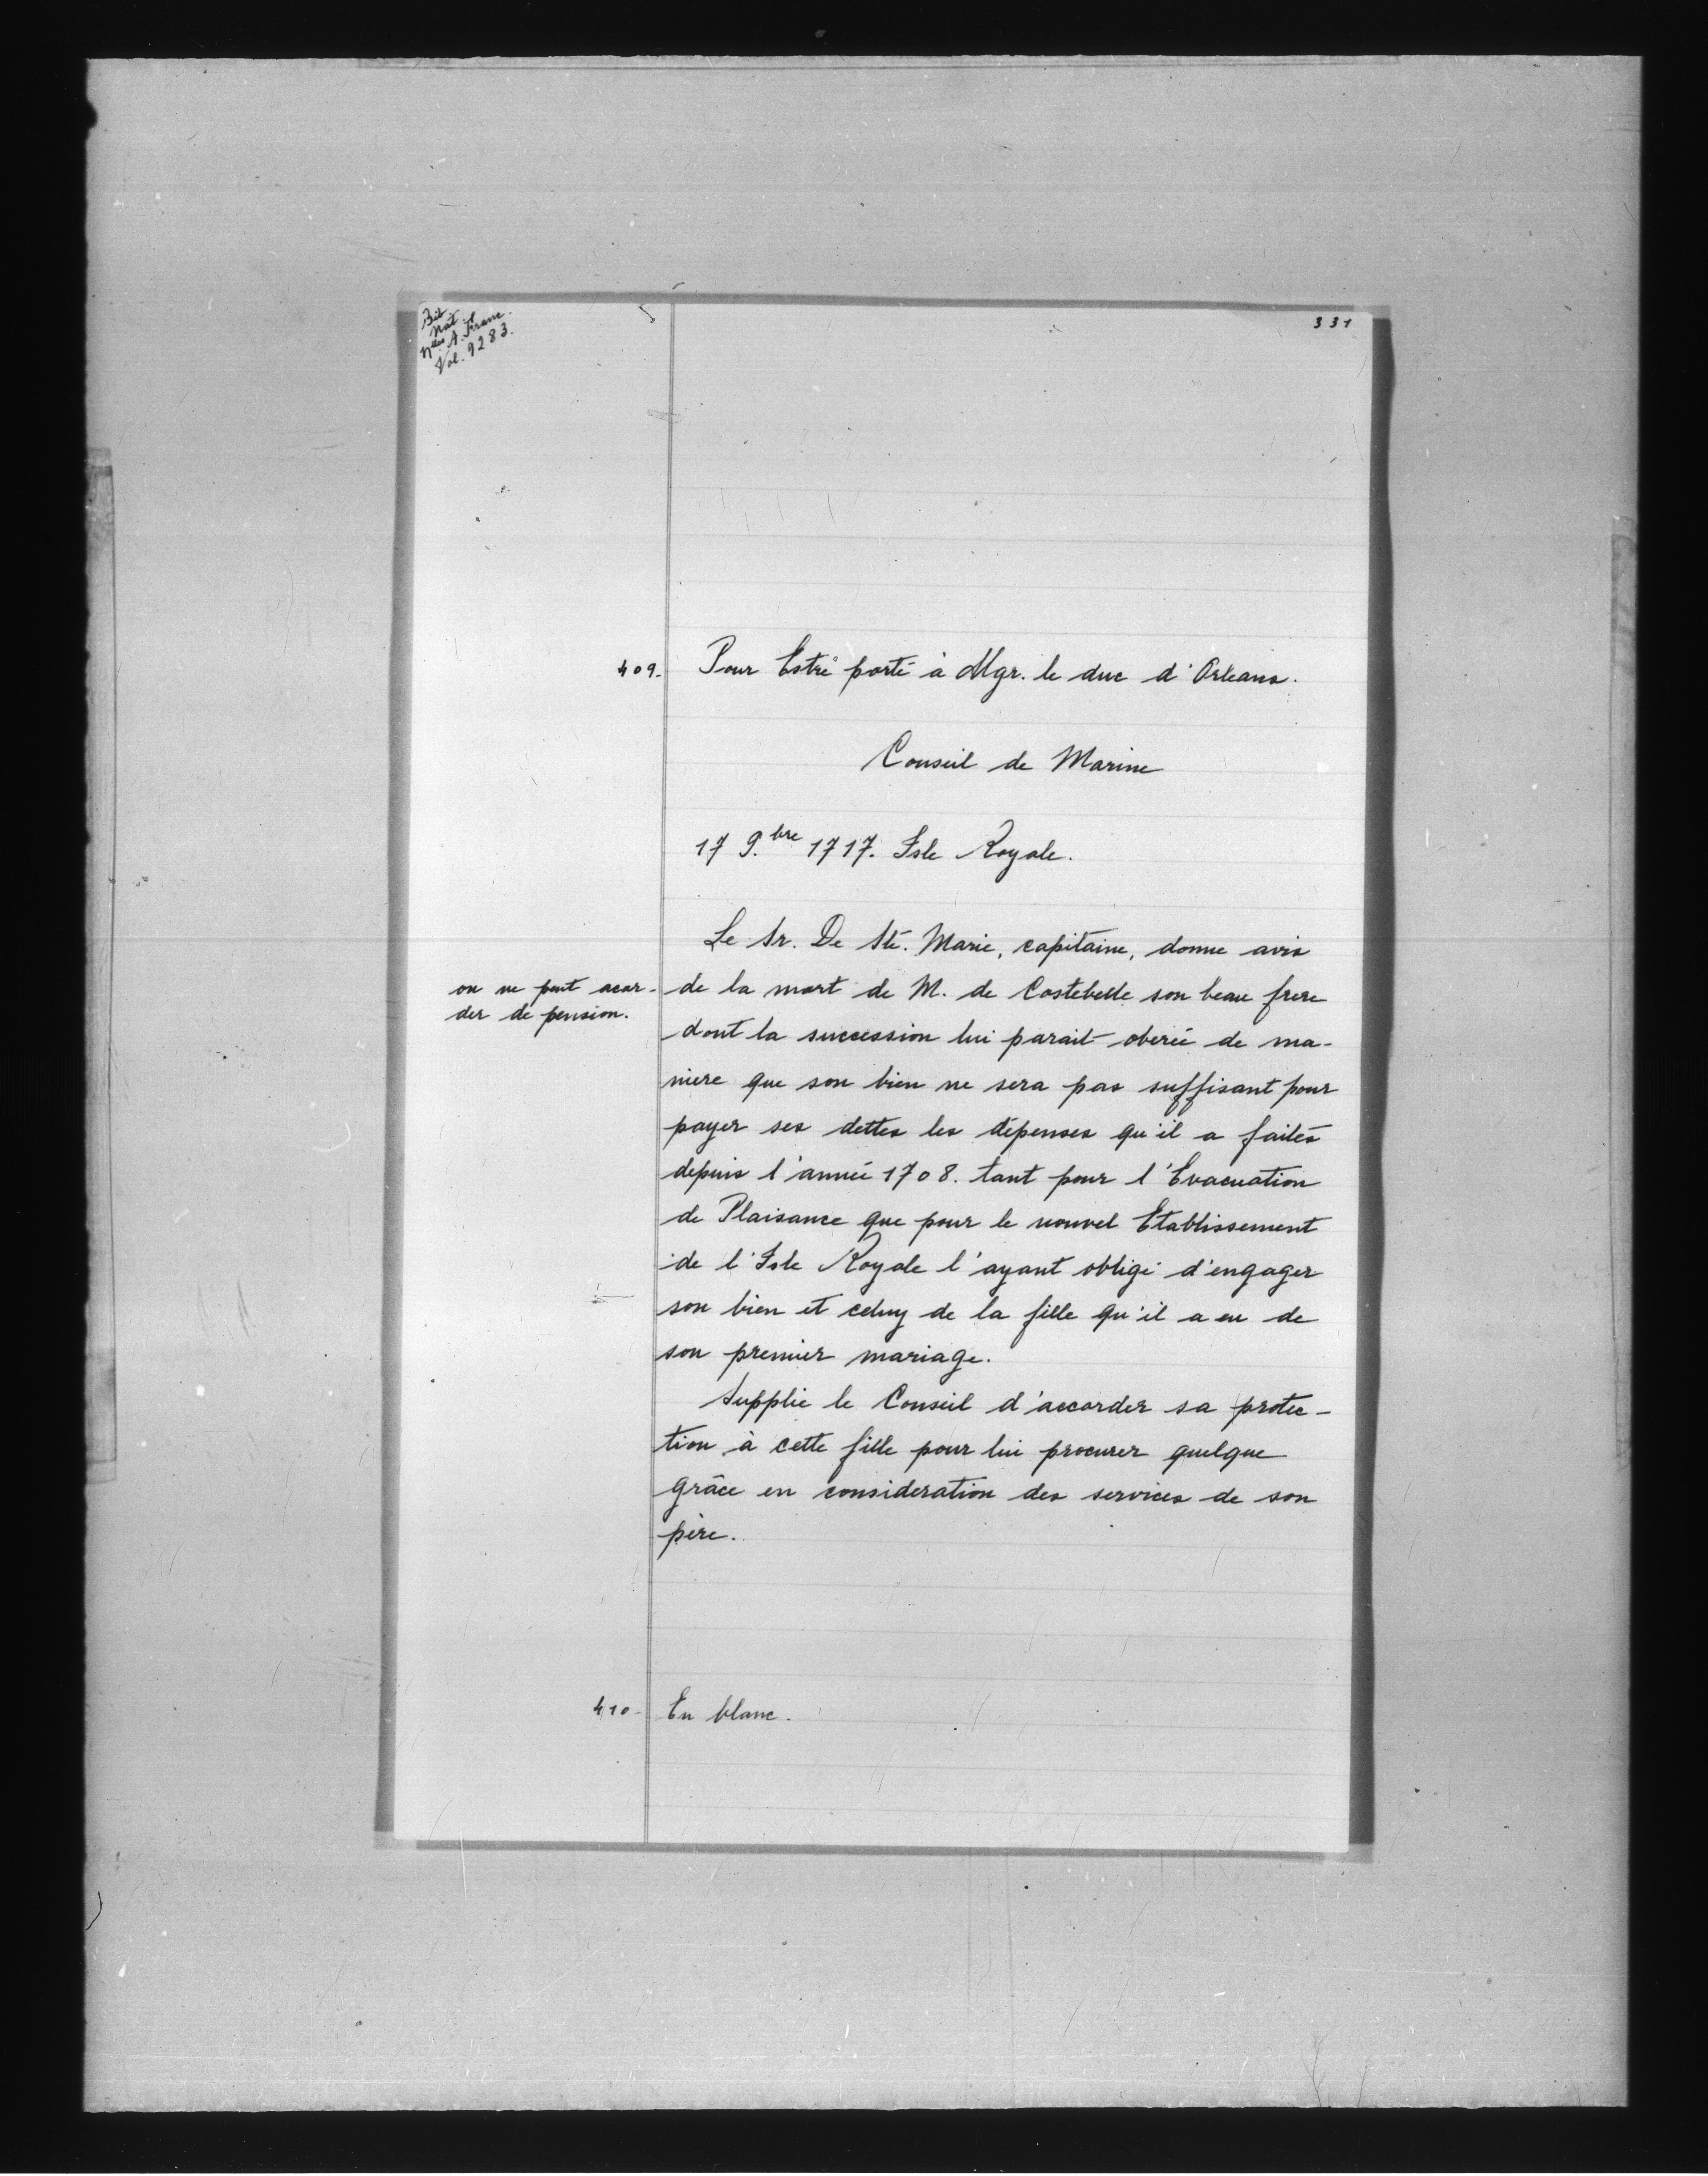 Bib.
Nat.
Nlles A. Franc.
Vol. 9283.
331
409. Pour Estre porté à Mgr. le duc d'Orleans.
Conseil de Marine
17 9.bre 1717. Isle Royale.
Le Sr. De Ste. Marie, capitaine, donne avis
on ne peut acor-
der de pension.
de la mort de M. de Costebelle son beau frere
dont la succession lui parait oberée de ma-
niere que son bien ne sera pas suffisant pour
payer ses dettes les dépenses qu'il a faites
depuis l'année 1708. tant pour l'Evacuation
de Plaisance que pour le nouvel Etablissement
de l'Isle Royale l'ayant obligé d'engager
son bien et celuy de la fille qu'il a eu de
son premier mariage.
Supplie le Conseil d'accorder sa protec-
tion à cette fille pour lui procurer quelque
grâce en consideration des services de son
père.
410. En blanc.